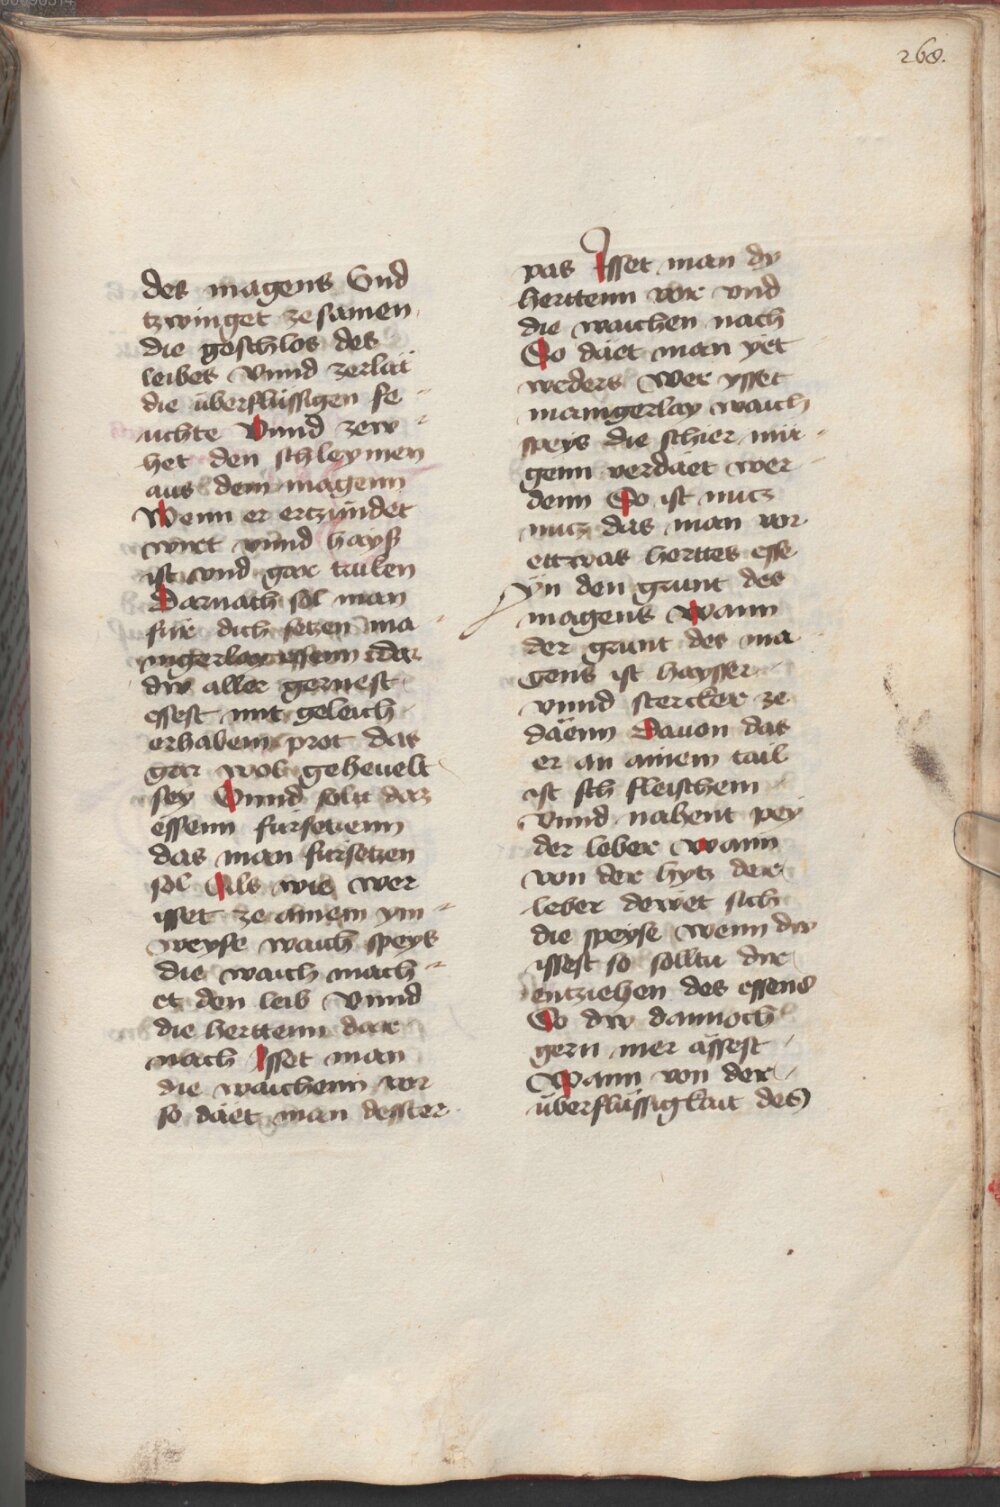 268.
des magens Vnd
tzwinget ze samen
die geschlos des
leibes Vnnd zerlät
die überflüssigen fe
uchte Vnnd zew
het den schleymen
aus dem magenn
Wenn er ertzündet
wirt vnnd hayß
ist vnd gar truken
Darnach sol man
für dich setzen ma
nigerlay essenn
dw aller gernest
essest mit geleich
erhabem prot das
gar wol geheuelt
sey Vnnd solt daz
essenn fürsetzenn
das man fürsetzen
sol Als wie wer
isset ze ainem ym
weyse waich speys
die waich mach
et den leib Vnnd
die herttenn dar
nach Isset man
die waichenn vor
so däet man desster
pas Isset man dy
herttenn vor vnd
die waichen nach
So däet man yet
weders Wer ysset
manigerlay waich
speis die schier mü
genn verdäet wer
denn So ist nucz
nucz das man vor
ettwas herttes esse
yn den grunt des
magens Wann
der grunt des ma
gens ist haysser
vnnd stercker ze
däenn Dauon das
er an ainem tail
ist sch fleischem
Vnnd nahent pey
der leber Wann
von der hytz der
leber dewet sich
die speyse wenn dw
issest so solltu dir
entziehen des essens
So dw dannoch
gern mer ässest
Wann von der
überflüssigkait des